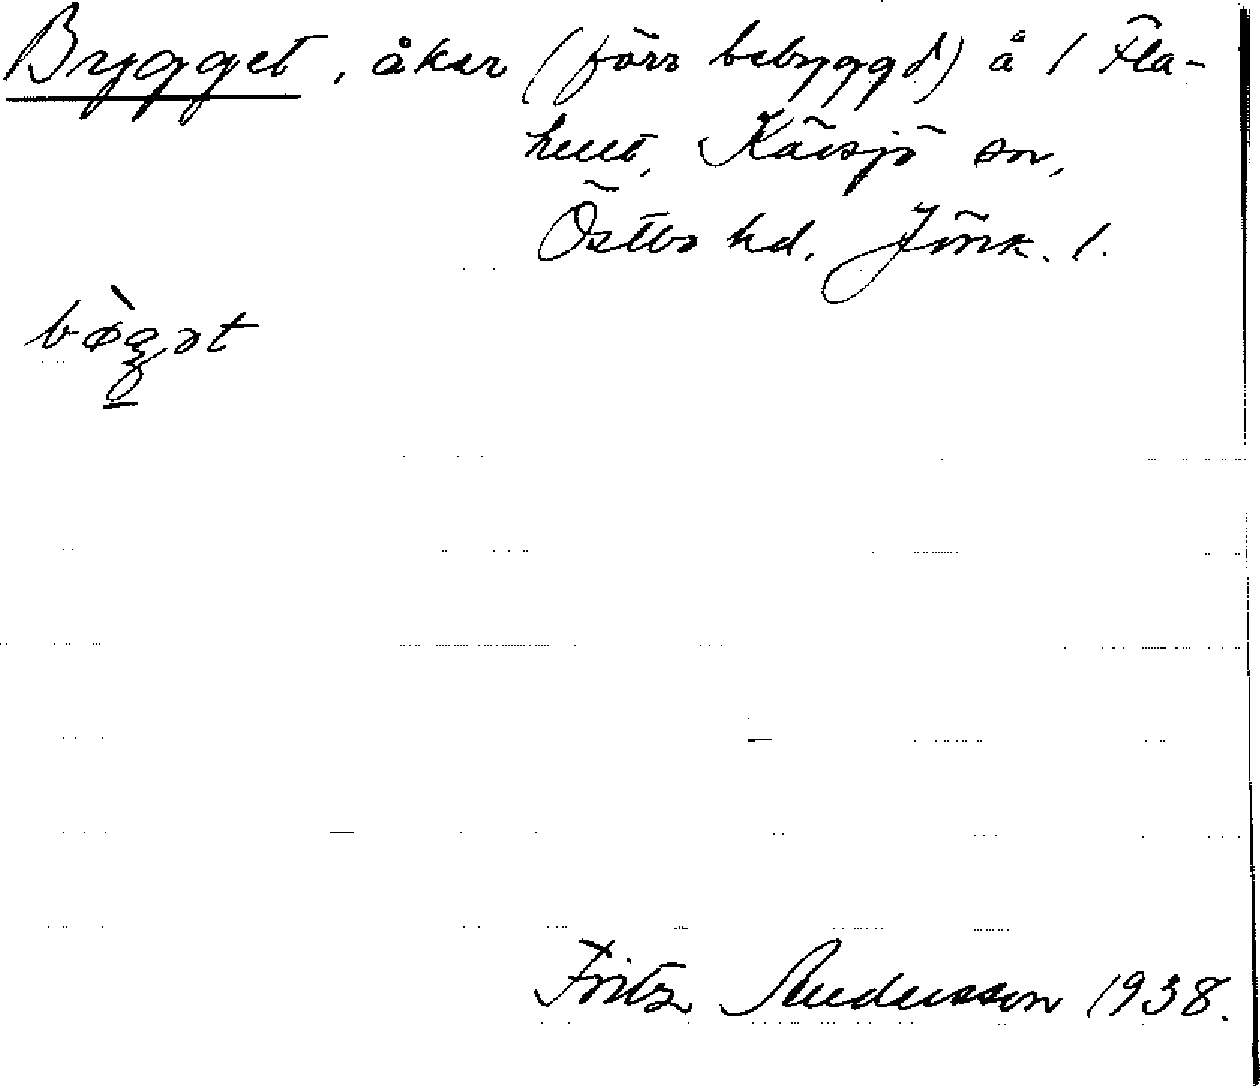 Brygget, åker (förr bebyggd) å 1 Fla-
hult, Kävsjö sn,
Östbo hd. Jönk. l.
Fritz Andersson 1938.